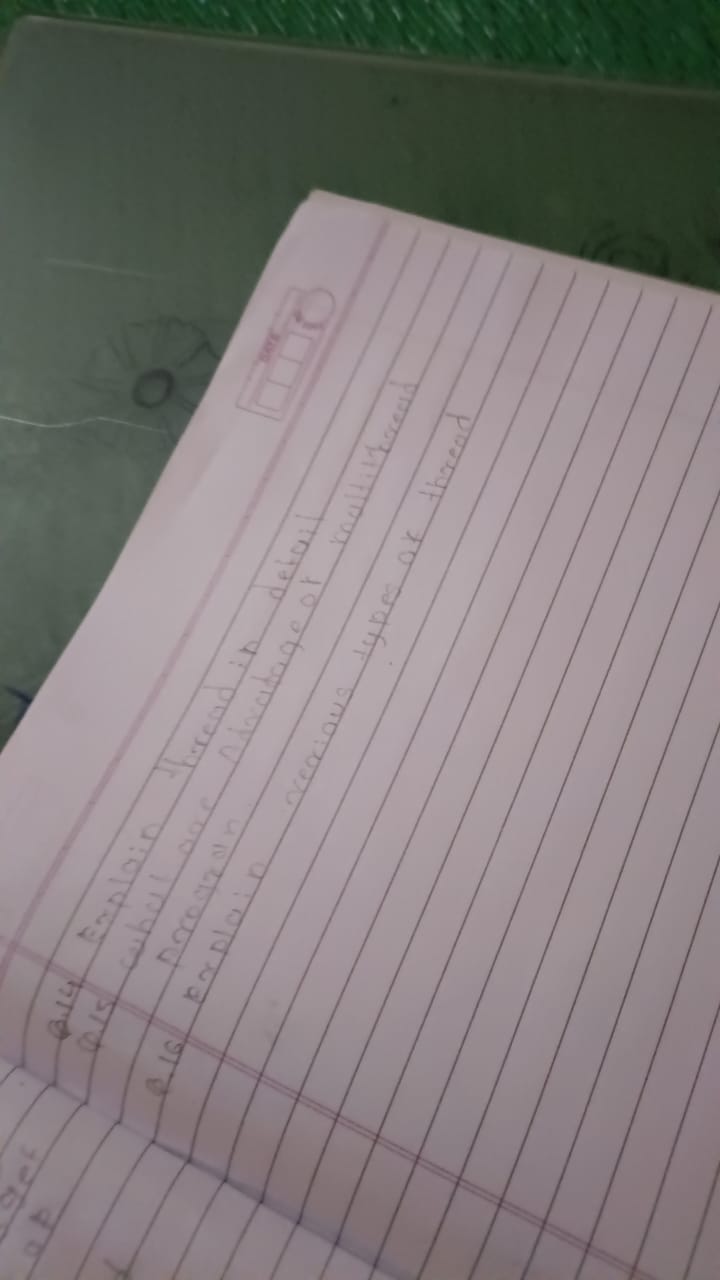 DATE
Q.14 Explain thread in detail
Q.15 what are Advantage of multithread
program.
Q.16 Explain various types of thread